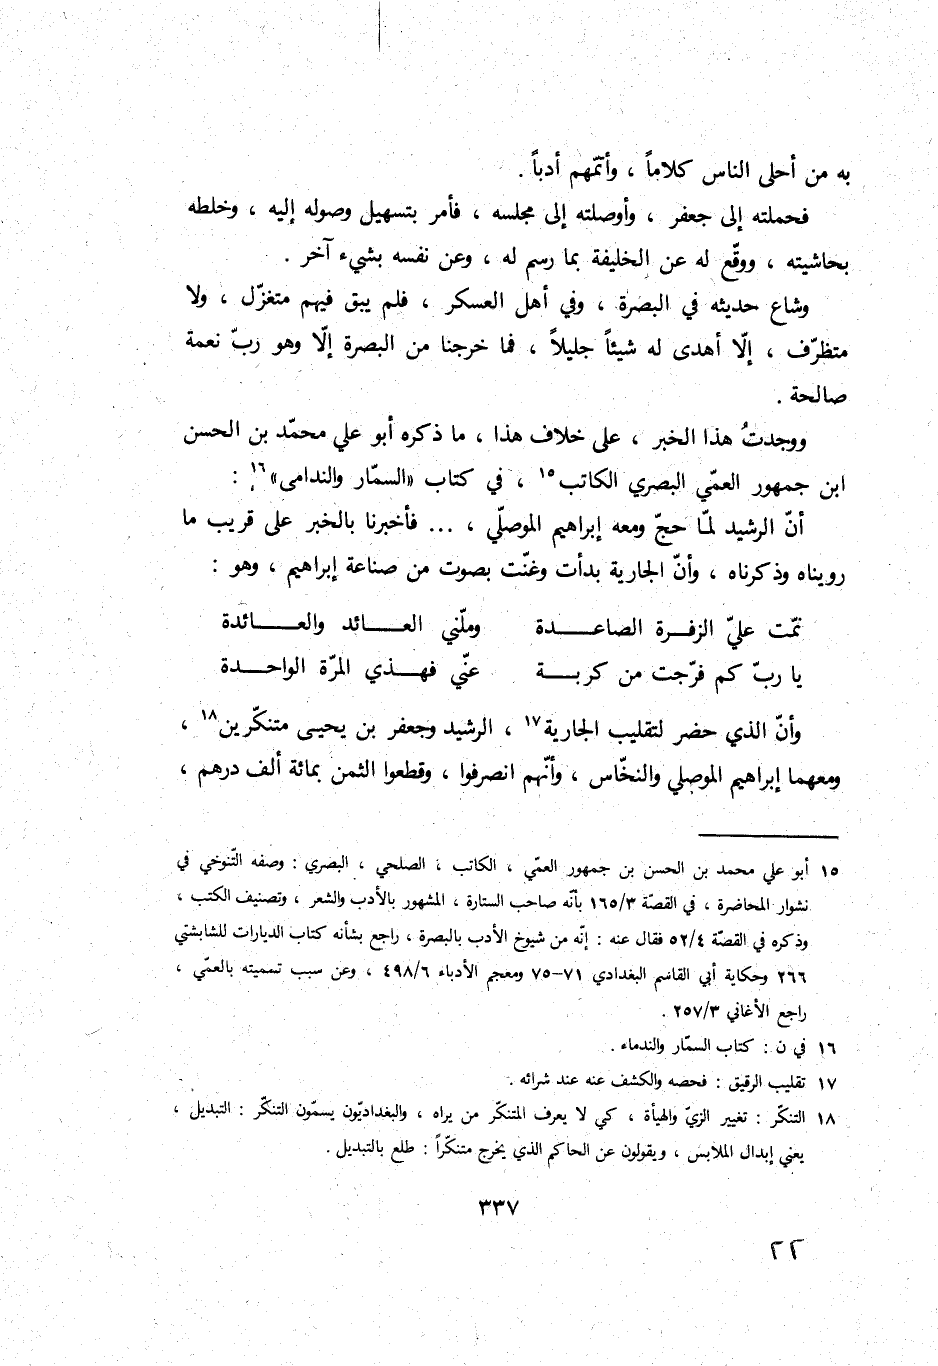 به من أحلى الناس كلاماً ، وأتمّهم أدباً .
فحملته إلى جعفر ، وأوصلته إلى مجلسه ، فأمر بتسهيل وصوله إليه ، وخلطه
بحاشيته ، ووقّع له عن الخليفة بما رسم له ، وعن نفسه بشيء آخر .
وشاع حديثه في البصرة ، وفي أهل العسكر ، فلم يبق فيهم متغزّل ، ولا
متظرّف ، إلّا أهدى له شيئاً جليلاً ، فما خرجنا من البصرة إلّا وهو ربّ نعمة
صالحة .
ووجدتُ هذا الخبر ، على خلاف هذا ، ما ذكره أبو علي محمّد بن الحسن
ابن جمهور العمّي البصري الكاتب١٥ ، في كتاب «السمّار والندامى»١٦ :
أنّ الرشيد لمّا حجّ ومعه إبراهيم الموصلّي ، ... فأخبرنا بالخبر على قريب ما
رويناه وذكرناه ، وأنّ الجارية بدأت وغنّت بصوت من صناعة إبراهيم ، وهو :
نمّت عليّ الزفـرة الصاعـــدة وملّني العــــائد والعــــائدة
يا ربّ كم فرّجت من كربـــة عنّي فهــذي المرّة الواحــدة
وأنّ الذي حضر لتقليب الجارية١٧ ، الرشيد وجعفر بن يحيى متنكّرين١٨ ،
ومعهما إبراهيم الموصلي والنخّاس ، وأنّهم انصرفوا ، وقطعوا الثمن بمائة ألف درهم ،
١٥ أبو علي محمد بن الحسن بن جمهور العمّي ، الكاتب ، الصلحي ، البصري : وصفه التّنوخي في
نشوار المحاضرة ، في القصّة ١٦٥/٣ بأنّه صاحب الستارة ، المشهور بالأدب والشعر ، وتصنيف الكتب ،
وذكره في القصّة ٥٢/٤ فقال عنه : إنّه من شيوخ الأدب بالبصرة ، راجع بشأنه كتاب الديارات للشابشتي
٢٦٦ وحكاية أبي القاسم البغدادي ٧١-٧٥ ومعجم الأدباء ٤٩٨/٦ ، وعن سبب تسميته بالعمّي ،
راجع الأغاني ٢٥٧/٣ .
١٦ في ن : كتاب السمّار والندماء .
١٧ تقليب الرقيق : فحصه والكشف عنه عند شرائه .
١٨ التنكّر : تغيير الزيّ والهيأة ، كي لا يعرف المتنكّر من يراه ، والبغداديّون يسمّون التنكّر : التبديل ،
يعني إبدال الملابس ، ويقولون عن الحاكم الذي يخرج متنكّراً : طلع بالتبديل .
٣٣٧
٢٢